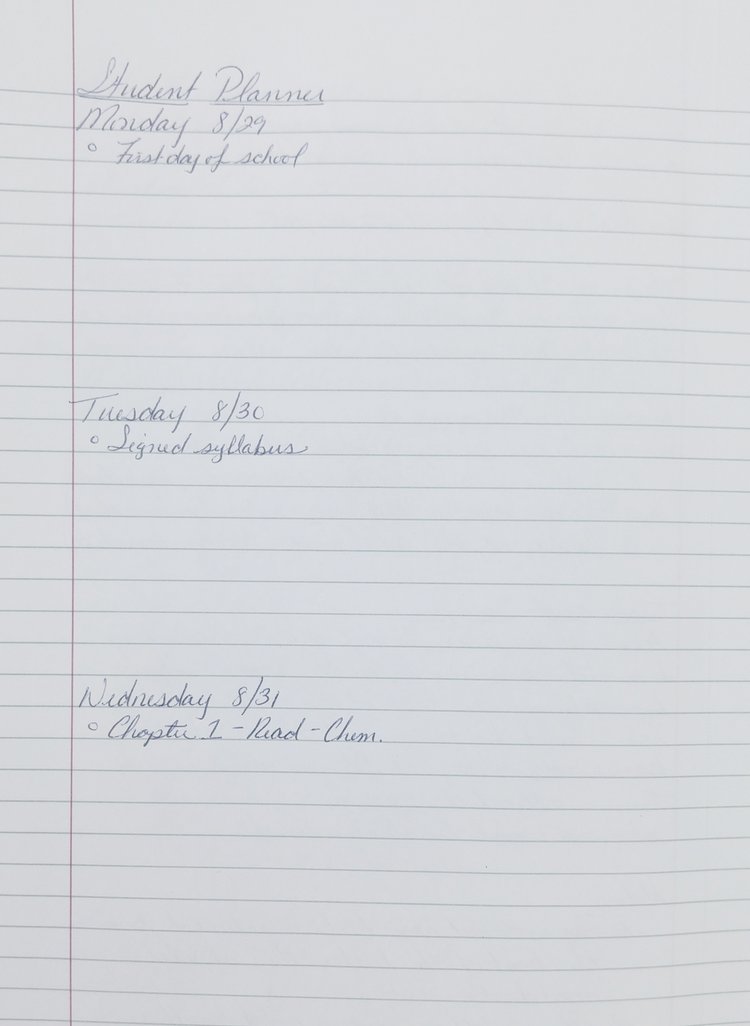 Student Planner
Monday 8/29
○ First day of school
Tuesday 8/30
○ Signed syllabus
Wednesday 8/31
○ Chapter 1 - Read - Chem.